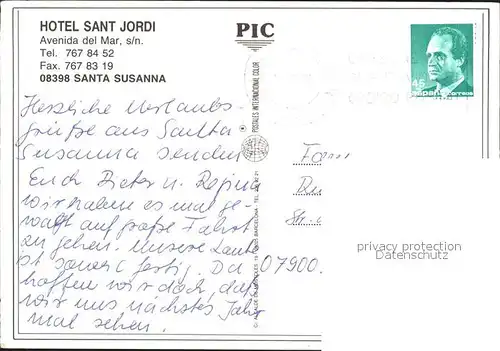 HOTEL SANT JORDI
Avenida del Mar, s/n.
Tel. 767 84 52
Fax. 767 83 19
08398 SANTA SUSANNA
PIC
45
españa correos
POSTALES INTERNACIONAL COLOR
Herzliche Urlaubs-
grüße aus Santa
Susanna senden
Euch Dieter u. Regina
wir haben es mal ge-
wagt auf große Fahrt
zu gehen. Unsere Laube
ist soweit fertig. Da
hoffen wir doch, daß
wir uns nächstes Jahr
mal sehen.
Fam
Str.
07900.
privacy protection
Datenschutz